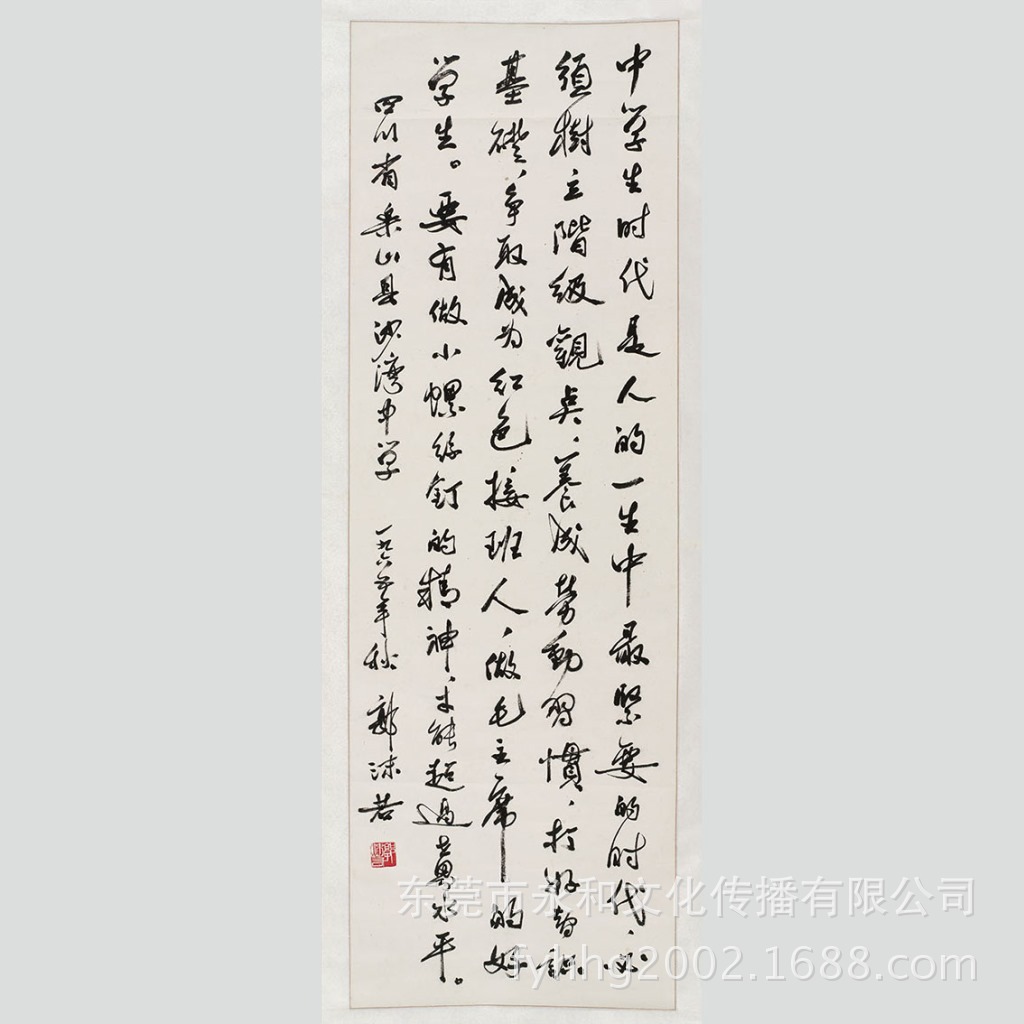 中学生时代是人的一生中最紧要的时代，必
须樹立階级觀点，養成劳動習慣，打好知识
基礎，争取成为红色接班人，做毛主席的好
学生。要有做小螺丝釘的精神，才能超過世界水平。
四川省乐山县沙湾中学 一九六五年秋 郭沫若
东莞市永和文化传播有限公司
fyhhg2002.1688.com